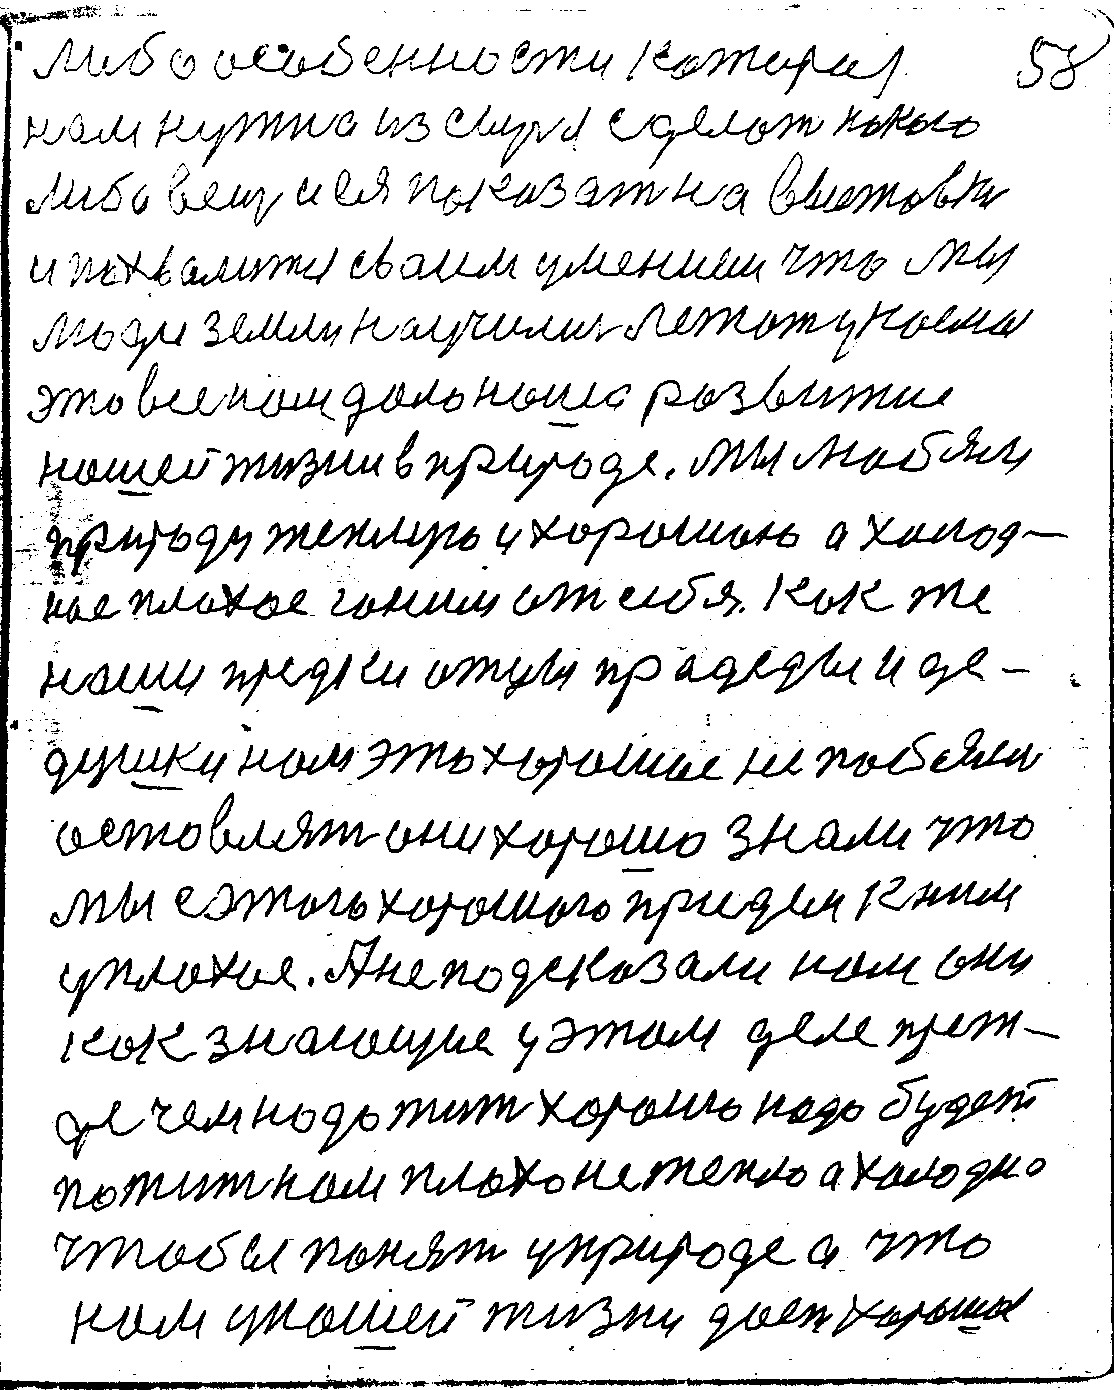 58
либо особенности которая
нам нужна из сырья сделат какого
либо вещ и ея показат на выстовки
и похвалится сваим умением что мы
люди земли научились летат у космас
это все нам дало наше развитие
нашей жизни в природе. Мы любим
природу теплую и хорошою а холод-
ное плохое гоним от себя. Как же
наши предки отцы прадеды и де-
душки нам это хорошое не
оставлят они хорошо знали что
мы с этого хорошого придем к ним
у плохое. А не подсказали нам они
как знающие у этом деле преж-
де чем надо жит хорошо надо будет
пожит нам плохо не тепло а холодно
чтобы понят у природе а что
нам у нашей жизни дает хороша